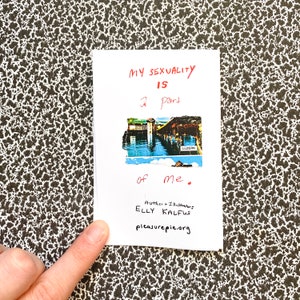 MY SEXUALITY
IS
a part
of me.
Author + Illustrator
ELLY KALFUS
pleasurepie.org